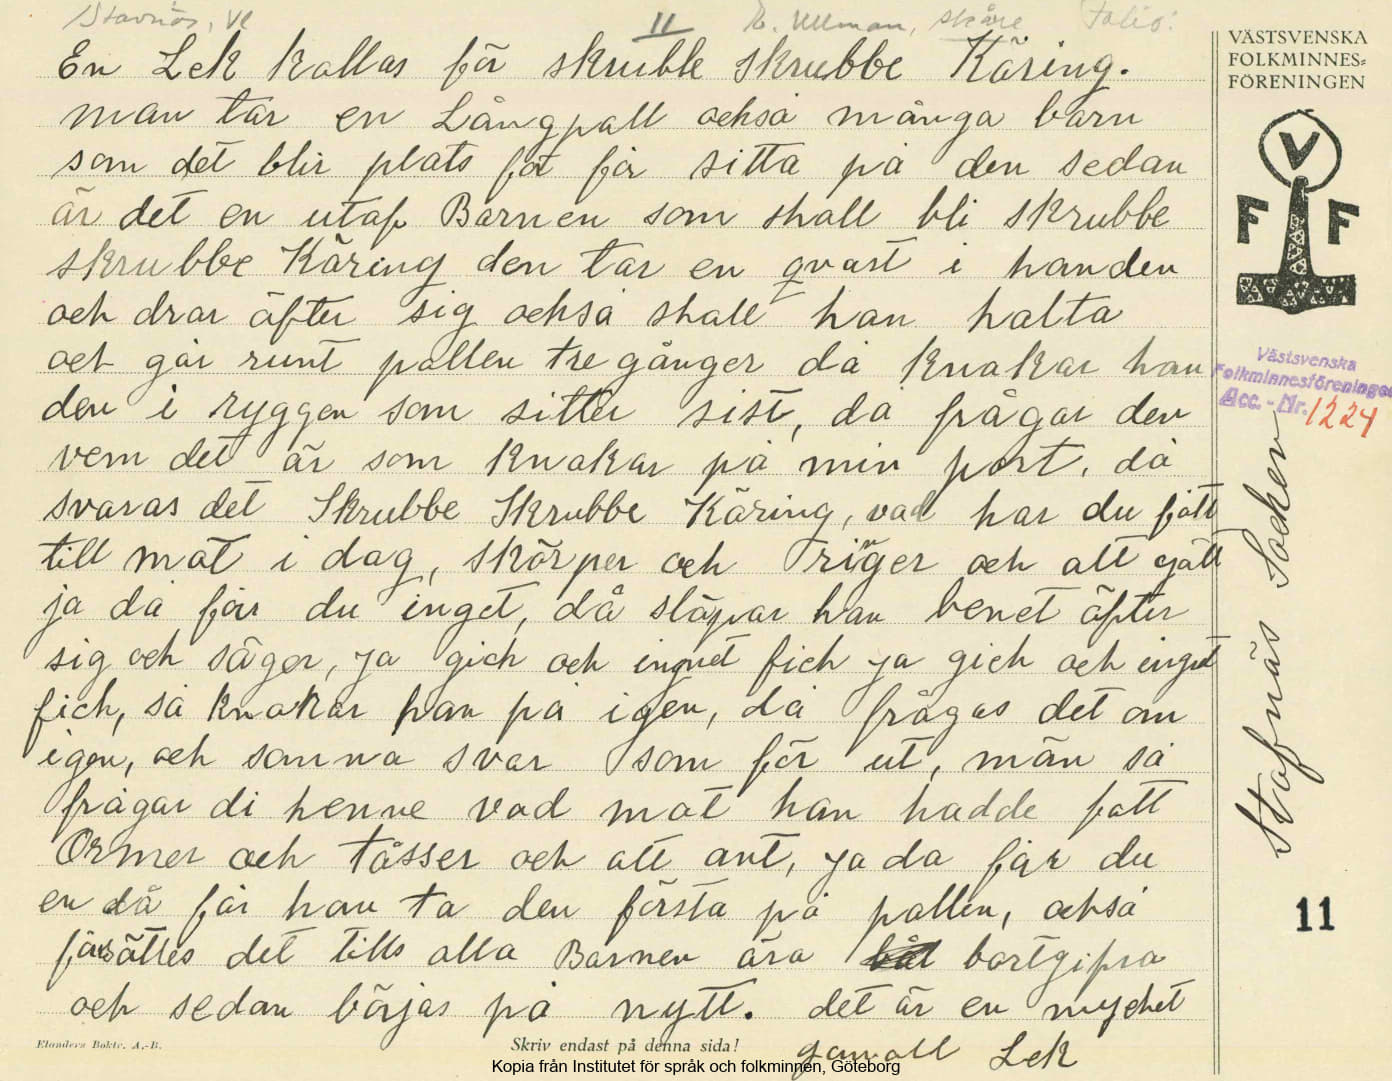 Stavnäs, Vl 11 E. Ullman, Skåre Folio:
En Lek kallas för skrubbe skrubbe Käring.
man tar en Långpall också många barn
som det blir plats fot får sitta på den sedan
är det en utaf Barnen som skall bli skrubbe
skrubbe Käring den tar en qvast i handen
och drar äfter sig också skall han halta
och går runt pallen tre gånger då knakar han
den i ryggen som sitter sist, då frågar den
vem det är som knakar på min port, då
svaras det Skrubbe Skrubbe Käring, vad har du fått
till mat i dag, skörper och riñger och allt gått
ja då får du inget, då släpar han benet äfter
sig och säger, ja gich och ingnet fich ja gich och inget
fich, så knakar han på igen, då frågas det om
igen, och samma svar som för ut, män så
frågar di henne vad mat han hadde fått
Ormer och tåsser och alt ant, ja da får du
en då får han ta den första på pallen, också
fårsättes det tills alla Barnen ära bortgifna
och sedan börjas på nytt. det är en mychet
gammall Lek
Elanders Boktr. A.-B.
Skriv endast på denna sida!
Kopia från Institutet för språk och folkminnen, Göteborg
VÄSTSVENSKA
FOLKMINNES=
FÖRENINGEN
V
F F
Västsvenska
Folkminnesföreningen
Acc. - Nr. 1224
Stafnäs Socken
11